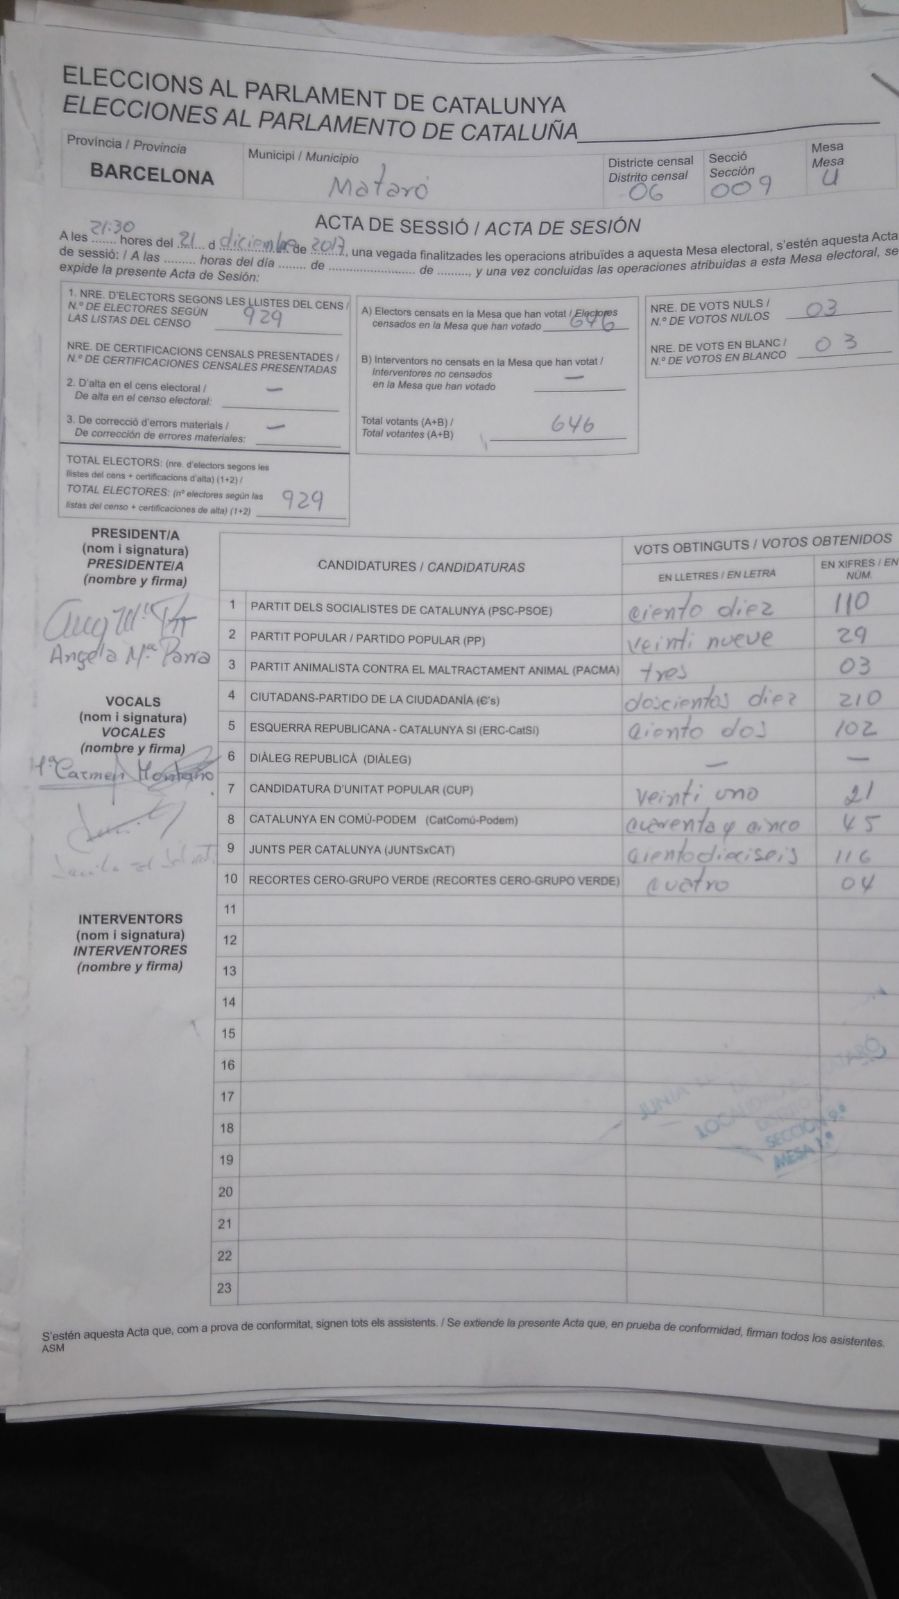 ELECCIONS AL PARLAMENT DE CATALUNYA
ELECCIONES AL PARLAMENTO DE CATALUÑA
Província / Provincia
BARCELONA
Municipi / Municipio
Mataró
Districte censal
Distrito censal
06
Secció
Sección
009
Mesa
Mesa
U
ACTA DE SESSIÓ / ACTA DE SESIÓN
A les 21:30 hores del 21 d diciembre de 2017, una vegada finalitzades les operacions atribuïdes a aquesta Mesa electoral, s'estén aquesta Acta
de sessió: / A las ......... horas del día ........ de ......................... de ........., y una vez concluidas las operaciones atribuidas a esta Mesa electoral, se
expide la presente Acta de Sesión:
1. NRE. D'ELECTORS SEGONS LES LLISTES DEL CENS /
N.º DE ELECTORES SEGÚN
LAS LISTAS DEL CENSO
929
NRE. DE CERTIFICACIONS CENSALS PRESENTADES /
N.º DE CERTIFICACIONES CENSALES PRESENTADAS
2. D'alta en el cens electoral /
De alta en el censo electoral: —
3. De correcció d'errors materials /
De corrección de errores materiales: —
TOTAL ELECTORS: (nre. d'electors segons les
llistes del cens + certificacions d'alta) (1+2) /
TOTAL ELECTORES: (nº electores según las
listas del censo + certificaciones de alta) (1+2)
929
A) Electors censats en la Mesa que han votat / Electores
censados en la Mesa que han votado 646
B) Interventors no censats en la Mesa que han votat /
Interventores no censados
en la Mesa que han votado —
Total votants (A+B) /
Total votantes (A+B) 646
NRE. DE VOTS NULS /
N.º DE VOTOS NULOS 03
NRE. DE VOTS EN BLANC /
N.º DE VOTOS EN BLANCO 03
PRESIDENT/A
(nom i signatura)
PRESIDENTE/A
(nombre y firma)
Angela Mª Parra
VOCALS
(nom i signatura)
VOCALES
(nombre y firma)
Mª Carmen Montaño
INTERVENTORS
(nom i signatura)
INTERVENTORES
(nombre y firma)
CANDIDATURES / CANDIDATURAS
VOTS OBTINGUTS / VOTOS OBTENIDOS
EN LLETRES / EN LETRA
EN XIFRES / EN
NÚM.
1 PARTIT DELS SOCIALISTES DE CATALUNYA (PSC-PSOE) ciento diez 110
2 PARTIT POPULAR / PARTIDO POPULAR (PP) veinti nueve 29
3 PARTIT ANIMALISTA CONTRA EL MALTRACTAMENT ANIMAL (PACMA) tres 03
4 CIUTADANS-PARTIDO DE LA CIUDADANÍA (C's) doscientos diez 210
5 ESQUERRA REPUBLICANA - CATALUNYA SI (ERC-CatSí) ciento dos 102
6 DIÀLEG REPUBLICÀ (DIÀLEG) — —
7 CANDIDATURA D'UNITAT POPULAR (CUP) veinti uno 21
8 CATALUNYA EN COMÚ-PODEM (CatComú-Podem) cuarenta y cinco 45
9 JUNTS PER CATALUNYA (JUNTSxCAT) cientodieciseis 116
10 RECORTES CERO-GRUPO VERDE (RECORTES CERO-GRUPO VERDE) cuatro 04
11
12
13
14
15
16
17
18
19
20
21
22
23
JUNTA
SECCION 9.ª
MESA 1.ª
S'estén aquesta Acta que, com a prova de conformitat, signen tots els assistents. / Se extiende la presente Acta que, en prueba de conformidad, firman todos los asistentes.
ASM